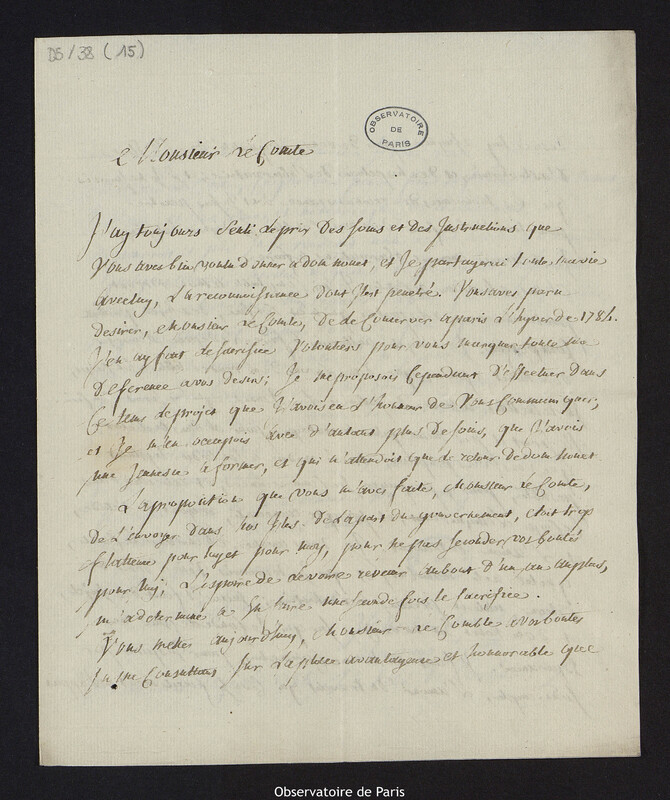 D5/38 (15)
OBSERVATOIRE
DE
PARIS
Monsieur le Comte
J'ay toujours senti le prix des soins et des Instructions que
Vous aves bien voulu donner a dom nouet, et Je partagerai toute ma vie
avec luy, la reconnoissance dont Il est penetré. Vous aves paru
desirer, Monsieur le Comte, de le Conserver a paris l'hyver de 1784.
J'en ay fait le sacrifice Volontiers pour vous marquer toute ma
deference a vos desirs; Je me proposois Cependant d'effectuer dans
Ce tems le projet que J'avois eu l'honneur de Vous Communiquer,
et Je m'en occupois avec d'autant plus de soins, que J'avois
une Jeunesse a former, et qui n'attendoit que le retour de dom nouet
La proposition que vous m'aves faite, Monsieur le Comte,
de L'envoyer dans les Isles de la part du gouvernement, etoit trop
flatteuse pour luy et pour moy, pour ne pas seconder vos bontés
pour luy; L'espoir de le voir revenir au bout d'un an au plus,
m'a determiné a en faire une seconde fois le sacrifice.
Vous mettes aujourd'huy, Monsieur le Comte vos bontés
en me Consultant sur la place avantageuse et honnorable que
Observatoire de Paris